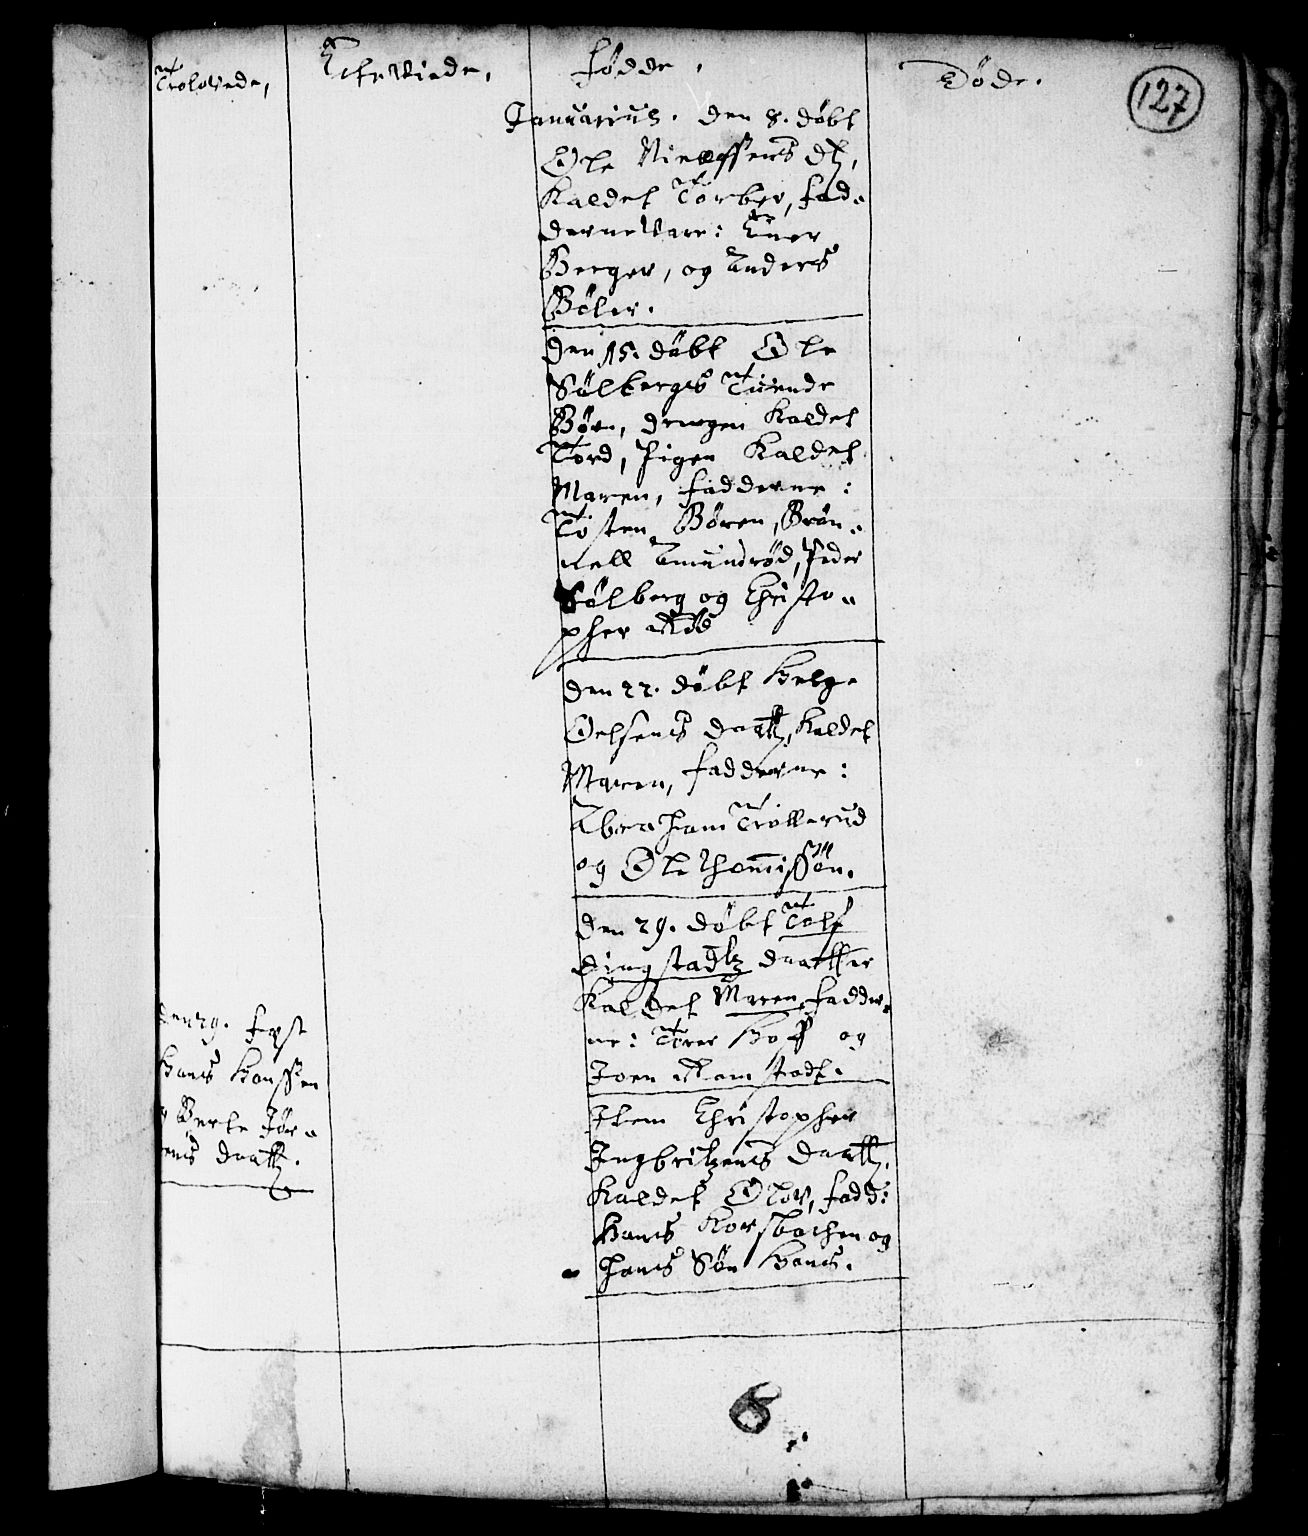 Trolovede,
Echteviede,
fødde,
Døde.
127
Januarius. den 8. døbt
Ole Nielssens dt,
Kaldet Torber, fad-
derne vare: Einer
Berger, og Anders
Bøler.
den 15. døbt Ole
Sølbergs Tuende
Børn, drengen Kaldet
Tord, pigen Kaldet
Maren, fadderne:
Tosten Børen, Brøn-
nell Amundrød, Peder
Sølberg og Christo-
pher
den 22. døbt Helge
Oelsens daatt, Kaldet
Maren, fadderne:
Abraham Trollerud
og Ole Thommissøn.
den 29. døbt Tolf
dingstadtz daatter
Kaldet Maren, fadder-
ne: Torer Hoff og
Joen Ramstadt.
Item Christopher
Ingbritzens daatt,
Kaldet Olor, fadd:
Hans Korsbachen og
hans Søn Hans.
den 29. fæst
Hans Hanssen
Berte Jør-
ens daatt.
6